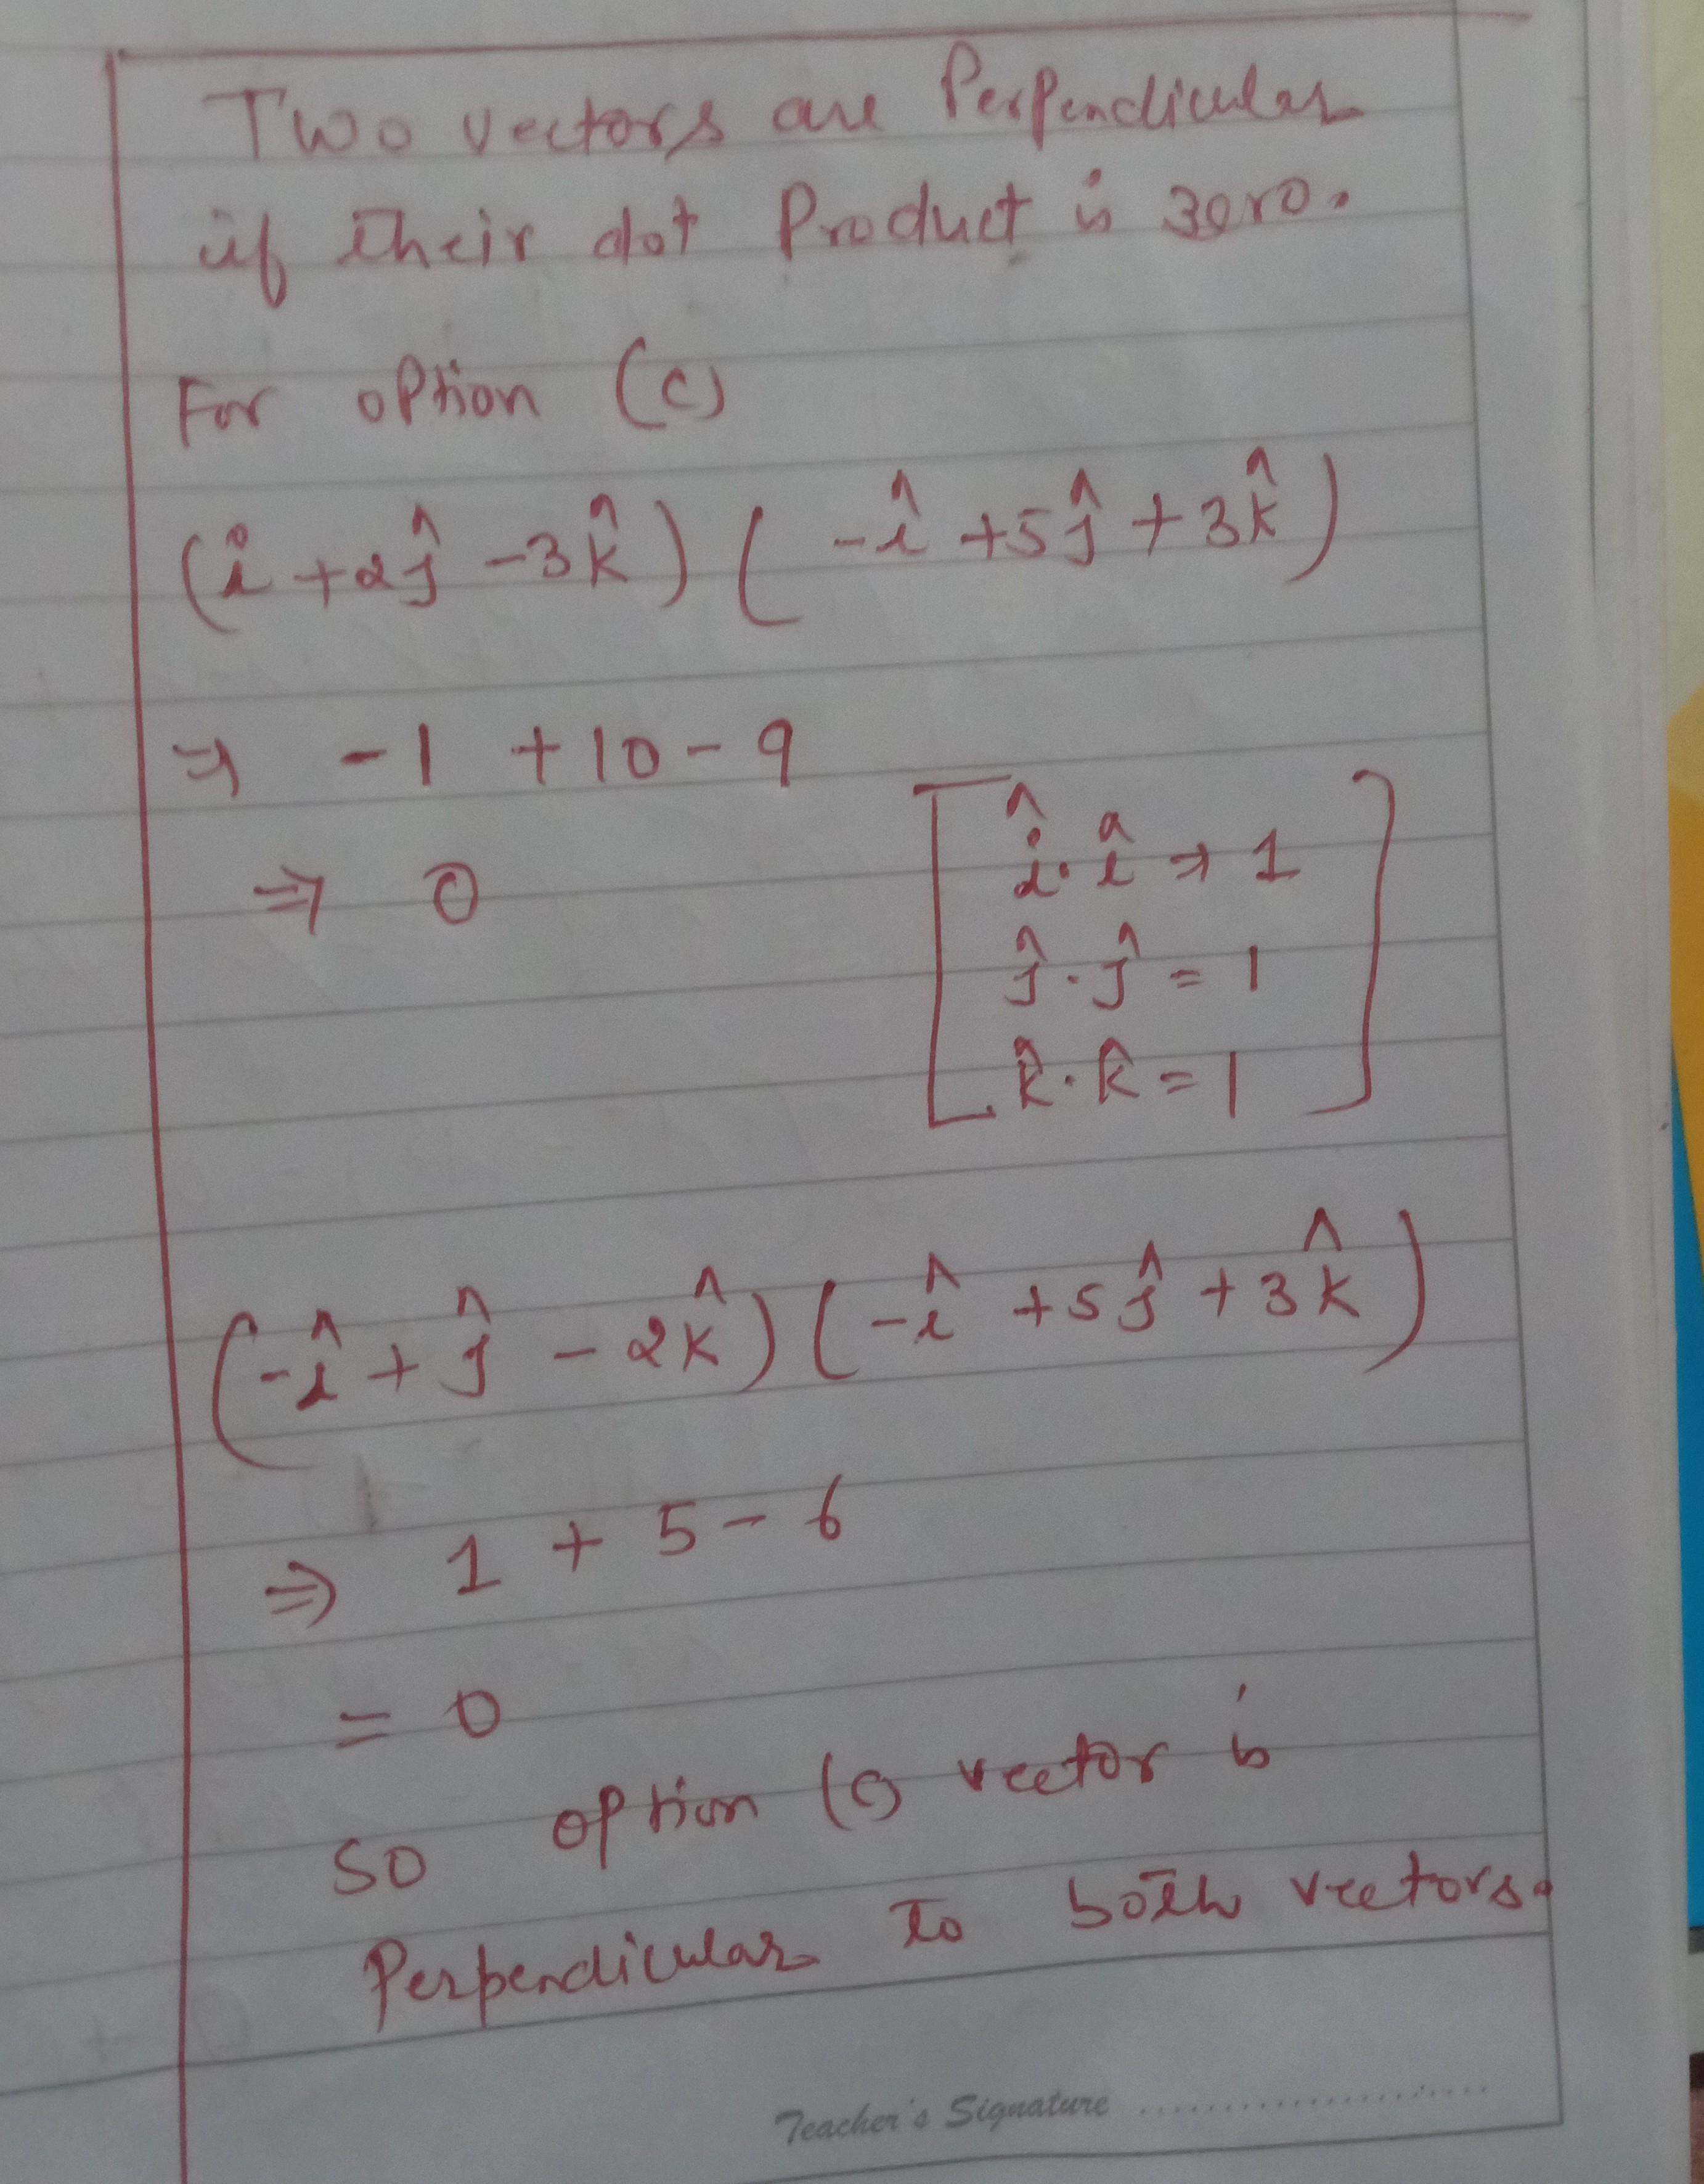 Two vectors are Perpendicular
if their dot Product is zero.
For option (c)
(î + 2ĵ - 3k̂) ( -î + 5ĵ + 3k̂ )
⇒ -1 + 10 - 9
⇒ 0
î . î → 1
ĵ . ĵ = 1
k̂ . k̂ = 1
(-î + ĵ - 2k̂) (-î + 5ĵ + 3k̂)
⇒ 1 + 5 - 6
= 0
so option (c) vector is
Perpendicular to both vectors.
Teacher's Signature ....................